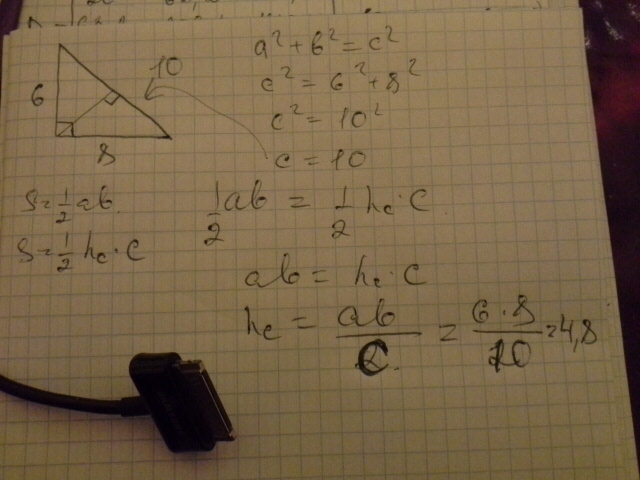 a² + b² = c²
c² = 6² + 8²
c² = 10²
c = 10
6
10
8
S = 1/2 ab.
S = 1/2 hc · C
1/2 ab = 1/2 hc · C
ab = hc · C
hc = ab/C = 6 · 8/10 = 4,8